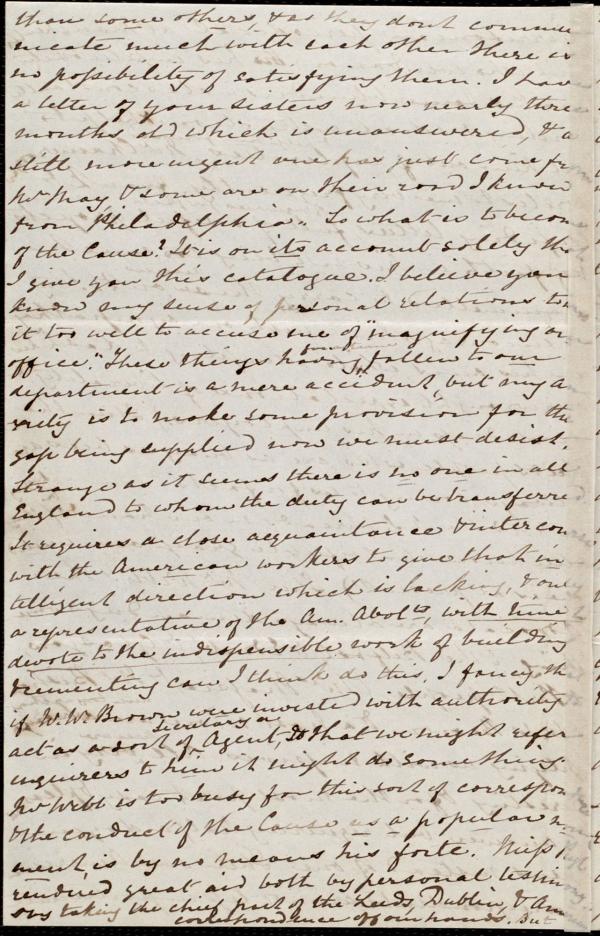 than some others, & as they dont commu
nicate much with each other there is
no possibility of satisfying them. I have
a letter of your sisters now nearly three
months old which is unanswered, & a
still more urgent one has just come fr
Mr May, & some are on their road I know
from Philadelphia. So what is to becom
of the Cause? It is on its account solely tha
I give you this catalogue. I believe you
know my sense of personal relations to
it too well to accuse me of "magnifying our
office." These things having fallen to our
department is a mere accident, but my a
xiety is to make some provision for the
gap being supplied now we must desist.
Strange as it seems there is no one in all
England to whom the duty can be transferred
It requires a close acquaintance & intercou
with the American workers to give that in
telligent direction which is lacking, & only
a representative of the Am. Abolts, with time
devote to the indispensible work of building
& cementing can I think do this. I fancy th
if W. W. Brown were invested with authority
act as a sort of Secretary or Agent, so that we might refer
inquirers to him it might do something.
Mr Webb is too busy for this sort of correspon
& the conduct of the Cause as a popular m
ment, is by no means his forte. Miss P
rendered great aid both by personal testim
ony taking the chief part of the Leeds, Dublin, & Am
correspondence off our hands. But